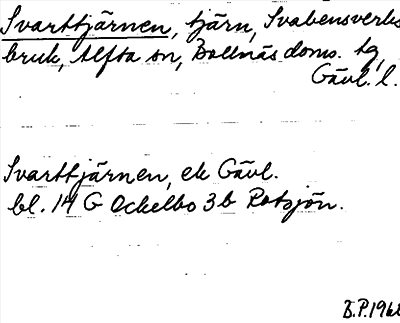 Svarttjärnen, tjärn, Svabensverks
bruk, Alfta sn, Bollnäs doms. tg,
Gävl. l.
Svarttjärnen, ek Gävl.
bl. 14 G Ockelbo 3b Rotsjön.
B.P. 1968